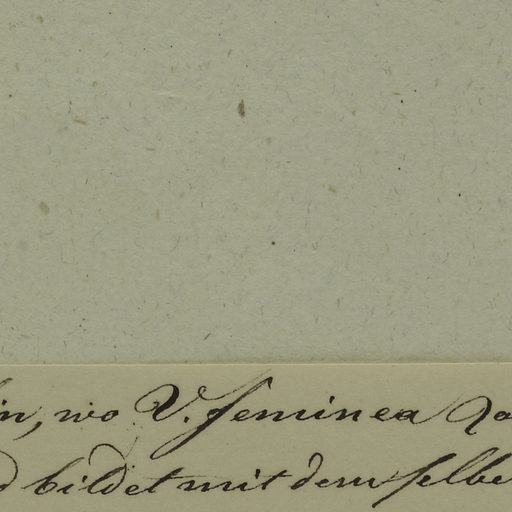 in, wo V. feminea
bildet mit demselbe